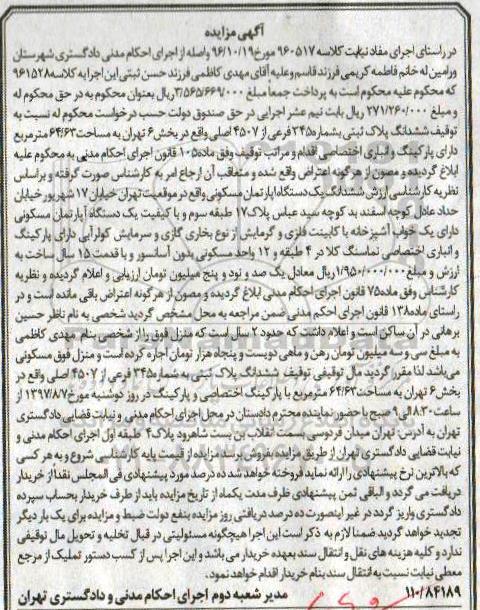 آگهی مزایده
در راستای اجرای مفاد نیابت کلاسه ۹۶۰۵۱۷ مورخ ۹۶/۱۰/۱۹ واصله از اجرای احکام مدنی دادگستری شهرستان
ورامین له خانم فاطمه کریمی فرزند قاسم وعلیه آقای مهدی کاظمی فرزند حسن ثبتی این اجرا به کلاسه ۹۶۱۵۲۸
که محکوم علیه محکوم است به پرداخت جمعا مبلغ ۳/۵۶۵/۶۶۹/۰۰۰ ریال بعنوان محکوم به در حق محکوم له
و مبلغ ۲۷۱/۲۶۰/۰۰۰ ریال بابت نیم عشر اجرایی در حق صندوق دولت حسب درخواست محکوم له نسبت به
توقیف ششدانگ پلاک ثبتی بشماره ۳۴۵ فرعی از ۴۵۰۷ اصلی واقع در بخش ۶ تهران به مساحت ۶۴/۶۳ مترمربع
دارای پارکینگ و انباری اختصاصی اقدام و مراتب توقیف وفق ماده ۱۰۵ قانون اجرای احکام مدنی به محکوم علیه
ابلاغ گردیده و مصون از هرگونه اعتراض واقع شده و متعاقب آن ارجاع امر به کارشناس صورت گرفته و براساس
نظریه کارشناسی ارزش ششدانگ یک دستگاه آپارتمان مسکونی واقع در موقعیت تهران خیابان ۱۷ شهریور خیابان
حداد عادل کوچه اسفند بد کوچه سید عباس پلاک ۱۷ طبقه سوم و با کیفیت یک دستگاه آپارتمان مسکونی
دارای یک خواب آشپزخانه با کابینت فلزی و گرمایش از نوع بخاری گازی و سرمایش کولر آبی دارای پارکینگ
و انباری اختصاصی نماسنگ کلا در ۴ طبقه و ۱۲ واحد مسکونی بدون آسانسور و با قدمت ۱۵ سال ساخت به
ارزش و مبلغ ۱/۹۵۰/۰۰۰/۰۰۰ ریال معادل یک صد و نود و پنج میلیون تومان ارزیابی و اعلام گردیده و نظریه
کارشناس وفق ماده ۷۵ قانون اجرای احکام مدنی ابلاغ گردیده و مصون از هرگونه اعتراض باقی مانده است و در
راستای ماده ۱۳۸ قانون اجرای احکم مدنی ضمن مراجعه به محل مشخص گردید شخصی به نام ناظر حسین
برهانی در آن ساکن است و اعلام داشت که حدود ۲ سال است که منزل فوق را از شخصی بنام مهدی کاظمی
به مبلغ سی و سه میلیون تومان رهن و ماهی دویست و پنجاه هزار تومان اجاره کرده است و منزل فوق مسکونی
می باشد لذا مقرر گردید مال توقیفی توقیف ششدانگ پلاک ثبتی به شماره ۳۴۵ فرعی از ۴۵۰۷ اصلی واقع در
بخش ۶ تهران به مساحت ۶۴/۶۳ مترمربع با پارکینگ اختصاصی و پارکینگ در روز دوشنبه مورخ ۱۳۹۷/۸/۷ از
ساعت ۸:۳۰ الی ۹ صبح با حضور نماینده محترم دادستان در محل اجرای احکام مدنی و نیابت قضایی دادگستری
تهران به آدرس: تهران میدان فردوسی بسمت انقلاب بن بست شاهرود پلاک ۴ طبقه اول اجرای احکام مدنی و
نیابت قضایی دادگستری تهران از طریق مزایده بفروش برسد مزایده از قیمت پایه کارشناسی شروع و به هر کسی
که بالاترین نرخ پیشنهادی را ارائه نماید فروخته خواهد شد ده درصد مورد پیشنهادی فی المجلس نقدا از خریدار
دریافت می گردد و الباقی ثمن پیشنهادی ظرف مدت یکماه از تاریخ مزایده باید از طرف خریدار بحساب سپرده
دادگستری واریز گردد در غیر اینصورت ده درصد دریافتی روز مزایده بنفع دولت ضبط و مزایده برای یک بار دیگر
تجدید خواهد گردید ضمنا لازم به ذکر است این اجرا هیچگونه مسئولیتی در قبال تخلیه و تحویل مال توقیفی
ندارد و کلیه هزینه های نقل و انتقال سند بعهده خریدار می باشد و این اجرا پس از کسب دستور تملیک از مرجع
معطی نیابت نسبت به انتقال سند بنام خریدار اقدام خواهد نمود.
۱۱۰/۸۴۱۸۹ مدیر شعبه دوم اجرای احکام مدنی و دادگستری تهران